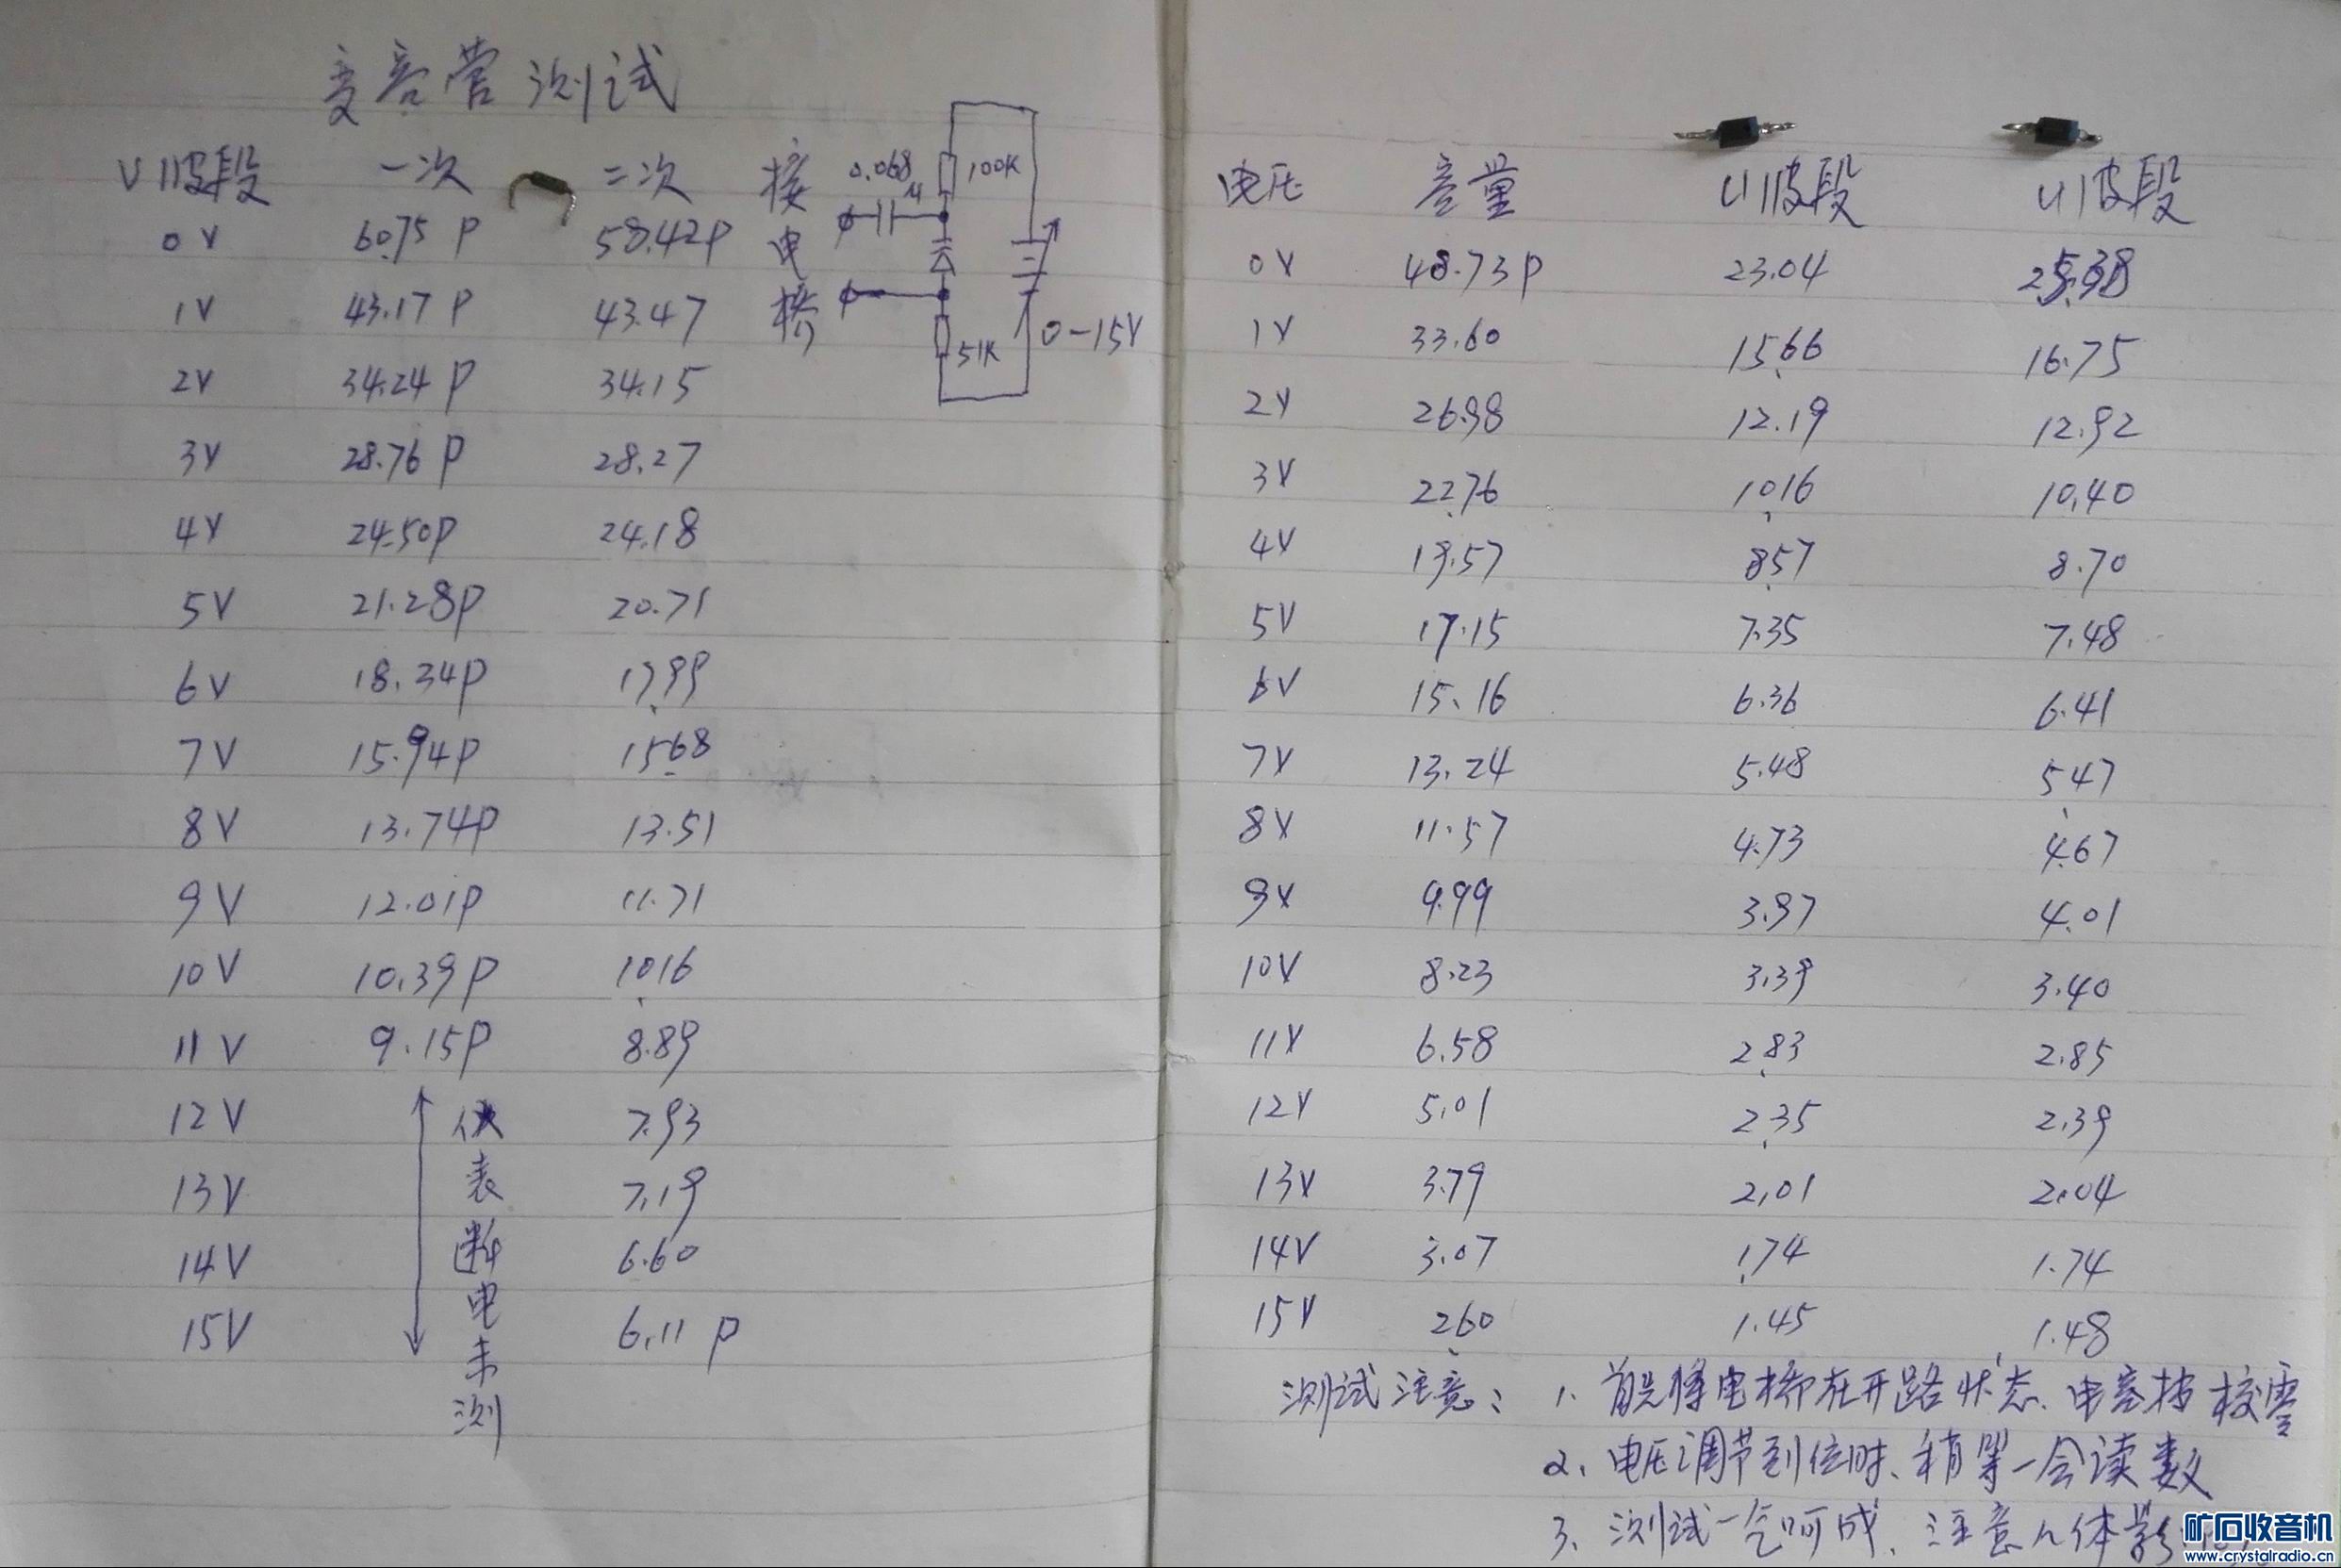 变容管测试
V波段 一次 二次
0V 60.75P 58.42P
1V 43.17P 43.47
2V 34.24P 34.15
3V 28.76P 28.27
4V 24.50P 24.18
5V 21.28P 20.71
6V 18.34P 17.99
7V 15.94P 15.68
8V 13.74P 13.51
9V 12.01P 11.71
10V 10.39P 10.16
11V 9.15P 8.89
12V 7.93
13V 7.19
14V 6.60
15V 6.11P
仪表断电未测
接电桥
0.068μ
100K
51K
0-15V
电压 容量 U波段 U波段
0V 48.73P 23.04
1V 33.60 15.66 16.75
2V 26.98 12.19 12.92
3V 22.76 10.16 10.40
4V 19.57 8.57 8.70
5V 17.15 7.35 7.48
6V 15.16 6.36 6.41
7V 13.24 5.48 5.47
8V 11.57 4.73 4.67
9V 9.99 3.97 4.01
10V 8.23 3.39 3.40
11V 6.58 2.83 2.85
12V 5.01 2.35 2.39
13V 3.79 2.01 2.04
14V 3.07 1.74 1.74
15V 2.60 1.45 1.48
测试注意：1、首先将电桥在开路状态、电容档校零
2、电压调节到位时、稍等一会读数
3、测试一气呵成、注意人体影
矿石收音机
www.crystalradio.cn